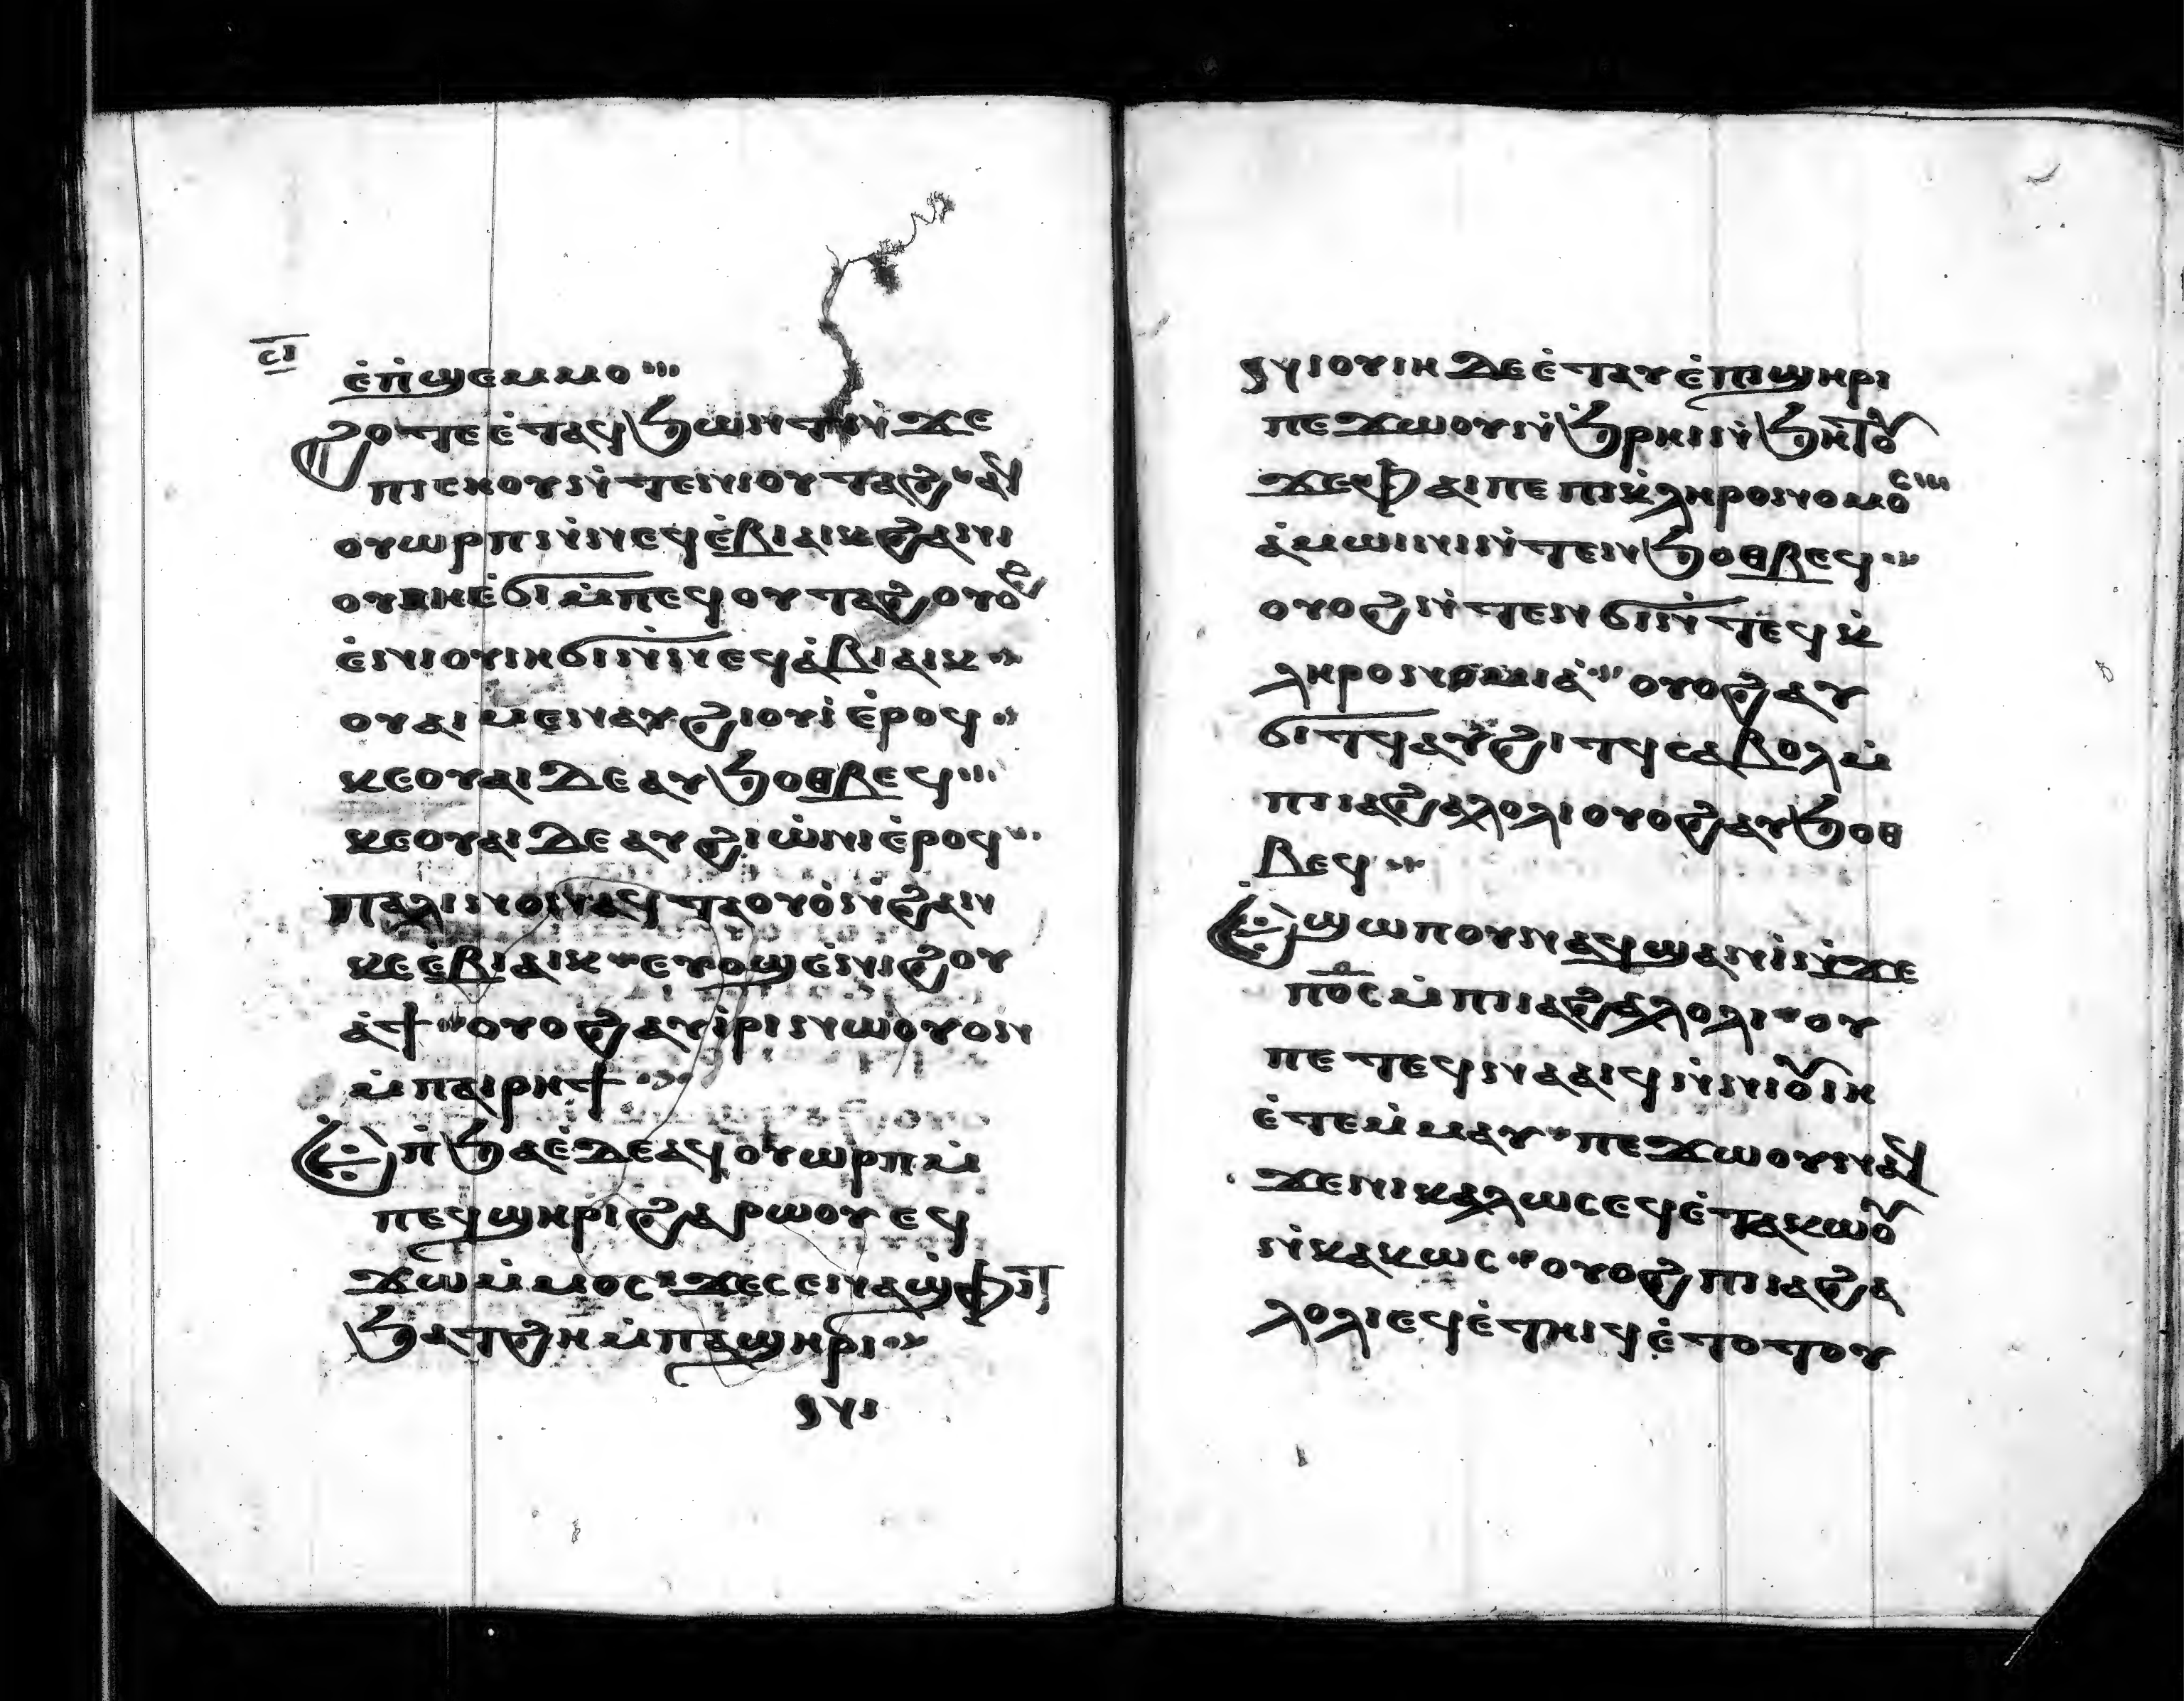 ⲥⲓ
ⲉ̇ⲡ̇ϣⲉⲙⲙⲟ
ϩⲟⲧⲉ ⲉ̇ⲧⲁϥϧⲱⲛⲧ ⲛ̇ϫⲉ
ⲡⲓⲥⲏⲟⲩ ⲛ̇ⲧⲉⲛⲓⲟⲩⲧⲁϩ ⲁϥ
ⲟⲩⲱⲣⲡ ⲛ̇ⲛⲉϥⲉ̇ⲃⲓⲁⲓⲕ ϩⲁⲛⲓ
ⲟⲩⲏⲉ̇ϭⲓ ⲙ̇ⲡⲉϥⲟⲩⲧⲁϩ ⲟⲩⲟϩ
ⲉ̇ⲛⲓⲟⲩⲓⲏ ϭⲓ ⲛ̇ⲛⲉϥⲁ̇ⲃⲓⲁⲓⲕ
ⲟⲩⲁⲓ ⲙⲉⲛ ⲁⲩϩⲓⲟⲩⲓ̇ ⲉ̇ⲣⲟϥ
ⲕⲉⲟⲩⲁⲓ ⲇⲉ ⲁⲩϧⲟⲑⲃⲉϥ
ⲕⲉⲟⲩⲁⲓ ⲇⲉ ⲁⲩϩⲓⲱ̇ⲛⲓ ⲉ̇ⲣⲟϥ
ⲡⲁⲗⲓⲛ ⲟⲛ ⲁϥⲧⲁⲟⲩⲟ̇ ⲛ̇ϩⲁⲛ
ⲕⲉⲉ̇ⲃⲓⲁⲓⲕ ⲉⲩⲟϣ ⲉ̇ⲛⲓϩⲟⲩ
ⲁ̇ϯ ⲟⲩⲟϩ ⲁⲩⲓ̇ⲣⲓ ⲛⲱⲟⲩ ⲟⲛ
ⲙ̇ⲡⲁⲓⲣⲏϯ
Ⲉⲡ̇ϧⲁⲉ̇ ⲇⲉ ⲁϥⲟⲩⲱⲣⲡ ⲙ̇
ⲡⲉϥϣⲏⲣⲓ ϩⲁⲣⲱⲟⲩ ⲉϥ
ϫⲱ ⲙ̇ⲙⲟⲥ ϫⲉ ⲥⲉⲛⲁϣⲫⲓⲧ
ϧⲁⲧϩⲏ ⲙ̇ⲡⲁϣⲏⲣⲓ
ⲛⲓ
ⲛⲓⲟⲩⲓⲏ ⲇⲉ ⲉ̇ⲧⲁⲩ ⲉ̇ⲡⲓϣⲏⲣⲓ
ⲡⲉϫⲱⲟⲩ ⲛ̇ϧ̇ⲣⲏⲓ ⲛ̇ϧⲏⲧⲟⲩ
ϫⲉ ⲫⲁⲓ ⲡⲉ ⲡⲓⲕ̇ⲗⲏⲣⲟⲛⲟⲙⲟⲥ
ⲁ̇ⲙⲱⲓⲛⲓ ⲛ̇ⲧⲉⲛϧⲟⲑⲃⲉϥ
ⲟⲩⲟϩ ⲛ̇ⲧⲉⲛϭⲓ ⲛ̇ⲧⲉϥⲕ̇
ⲗⲏⲣⲟⲛⲟⲙⲓⲁ̇ ⲟⲩⲟϩ ⲁⲩ
ϭⲓⲧϥ ⲁⲩϩⲓⲧϥ ⲥⲁⲃⲟⲗ ⲙ̇
ⲡⲓⲓⲁϩⲁⲗⲟⲗⲓ ⲟⲩⲟϩ ⲁⲩϧⲟⲑ
ⲃⲉϥ
Ⲉϣⲱⲡ ⲟⲩⲛ ⲁϥϣⲁⲛⲓ̇ ⲛ̇ϫⲉ
ⲡⲟ̅ⲥ̅ ⲙ̇ⲡⲓⲓⲁϩⲁⲗⲟⲗⲓ ⲟⲩ
ⲡⲉⲧⲉϥⲛⲁⲁⲓϥ ⲛ̇ⲛⲓⲟⲩⲓⲏ
ⲉ̇ⲧⲉⲙ̇ⲙⲁⲩ ⲡⲉϫⲱⲟⲩ ⲛⲁϥ
ϫⲉ ⲛⲓⲕⲁⲕⲱⲥ ⲉϥⲉ̇ⲧⲁⲕⲱⲟⲩ
ⲛ̇ⲕⲁⲕⲱⲥ ⲟⲩⲟϩ ⲡⲓⲓⲁϩⲁ
ⲗⲟⲗⲓ ⲉϥⲉ̇ⲧⲏⲓϥ ⲉ̇ⲧⲟⲧⲟⲩ